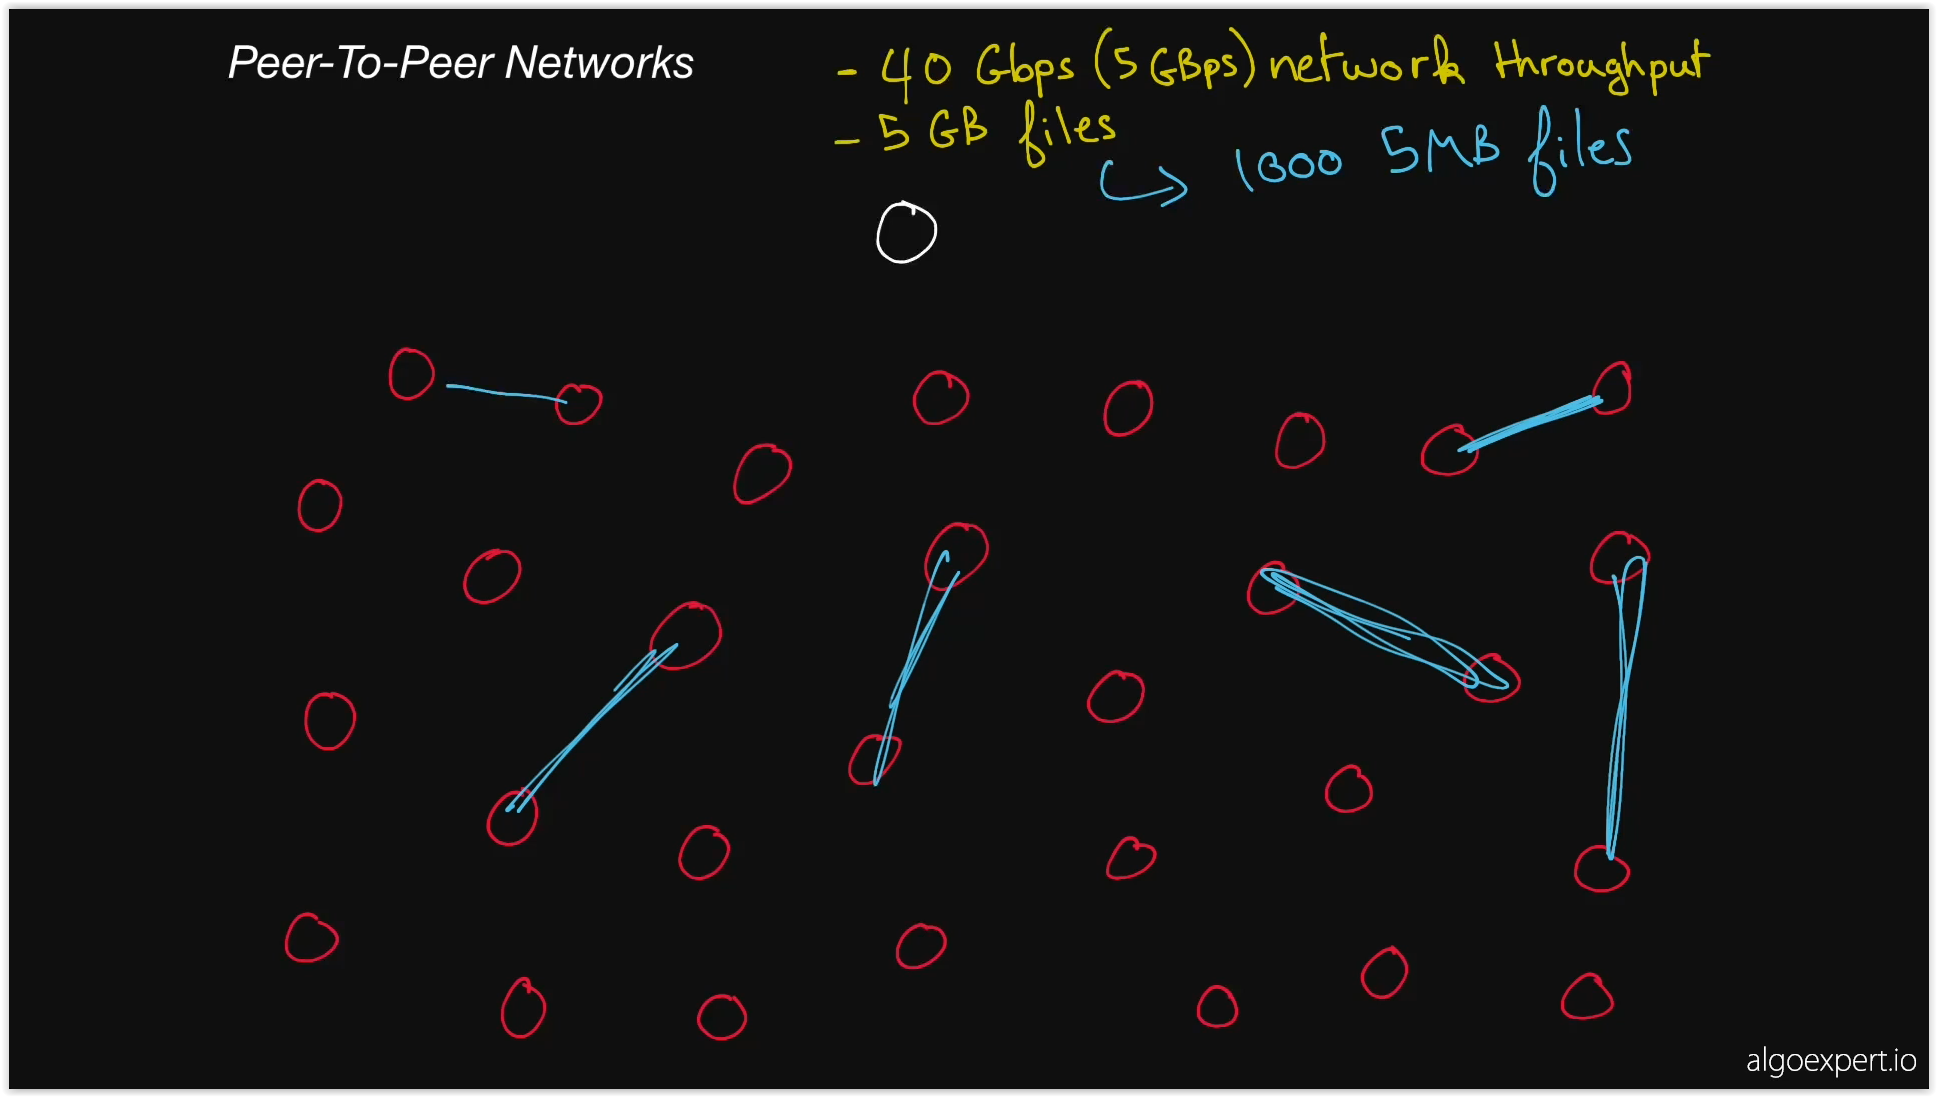 Peer-To-Peer Networks
- 40 Gbps (5 GBps) network throughput
- 5 GB files
1000 5MB files
algoexpert.io